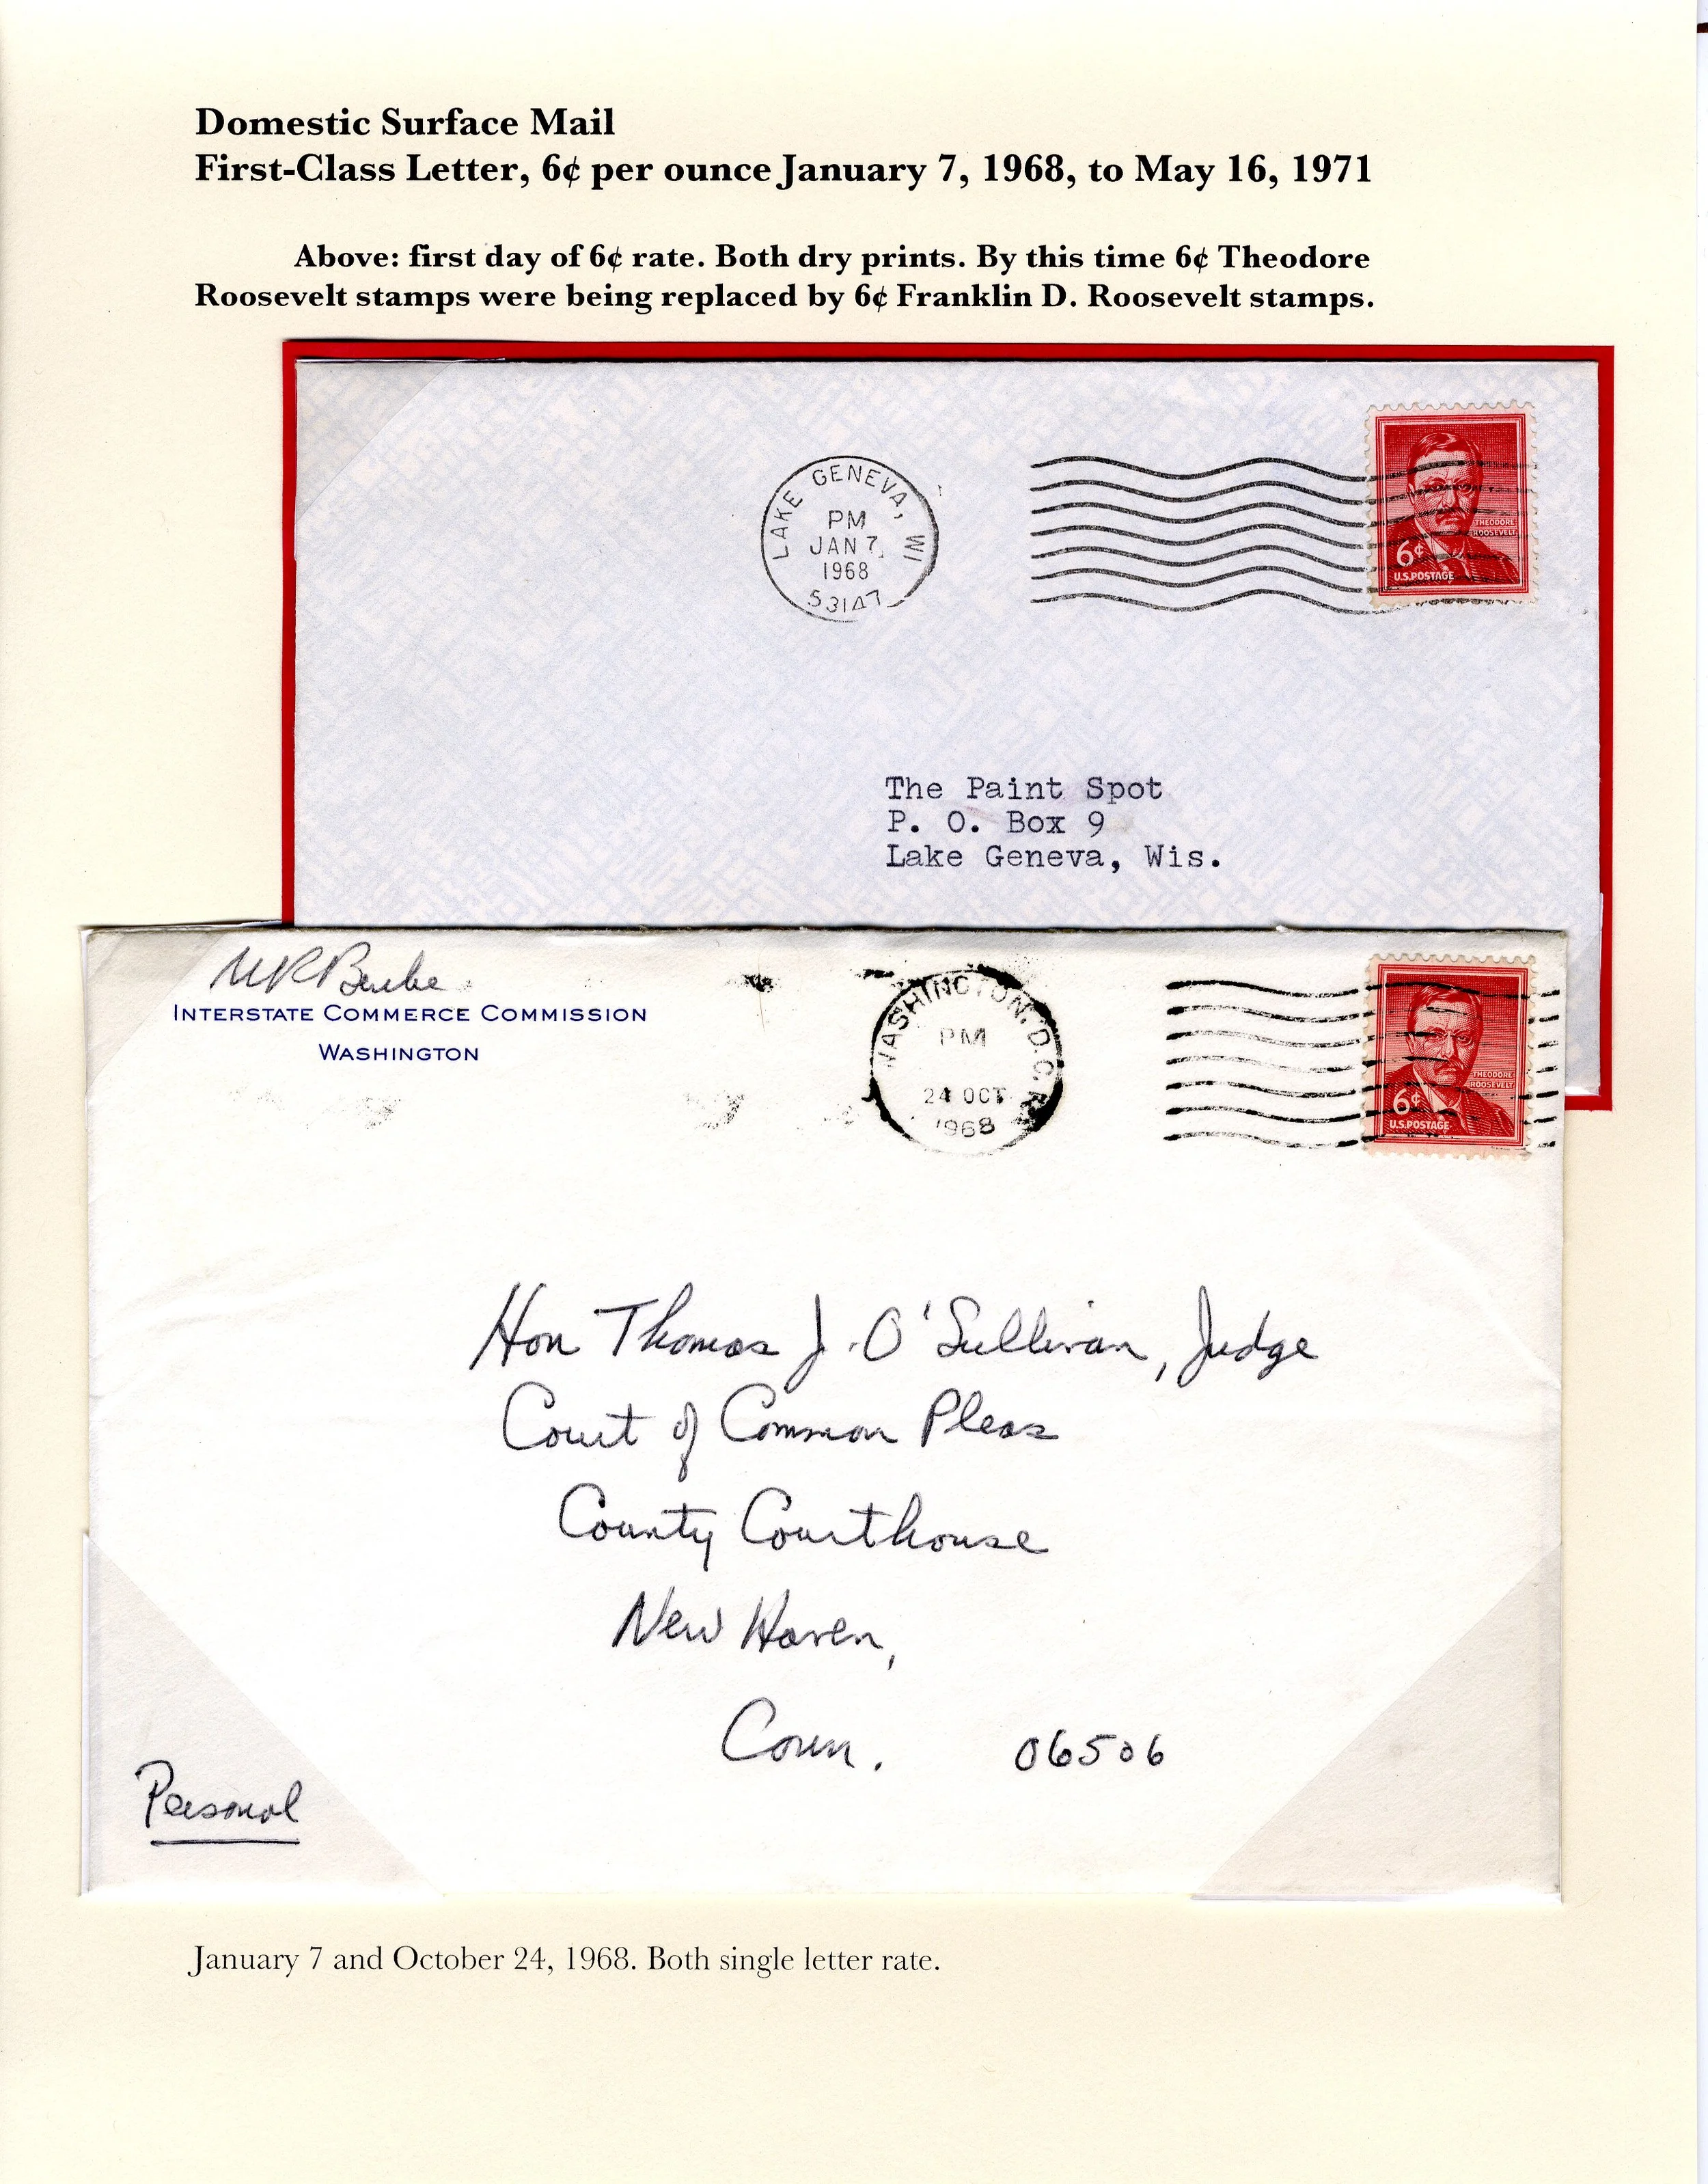 Domestic Surface Mail
First-Class Letter, 6¢ per ounce January 7, 1968, to May 16, 1971
Above: first day of 6¢ rate. Both dry prints. By this time 6¢ Theodore
Roosevelt stamps were being replaced by 6¢ Franklin D. Roosevelt stamps.
LAKE GENEVA, WI
PM
JAN 7
1968
53147
THEODORE
ROOSEVELT
6¢
U.S.POSTAGE
The Paint Spot
P. O. Box 9
Lake Geneva, Wis.
INTERSTATE COMMERCE COMMISSION
WASHINGTON
WASHINGTON, D.C.
PM
24 OCT
1968
THEODORE
ROOSEVELT
6¢
U.S.POSTAGE
Hon Thomas J. O'Sullivan, Judge
Court of Common Pleas
County Courthouse
New Haven,
Conn. 06506
Personal
January 7 and October 24, 1968. Both single letter rate.